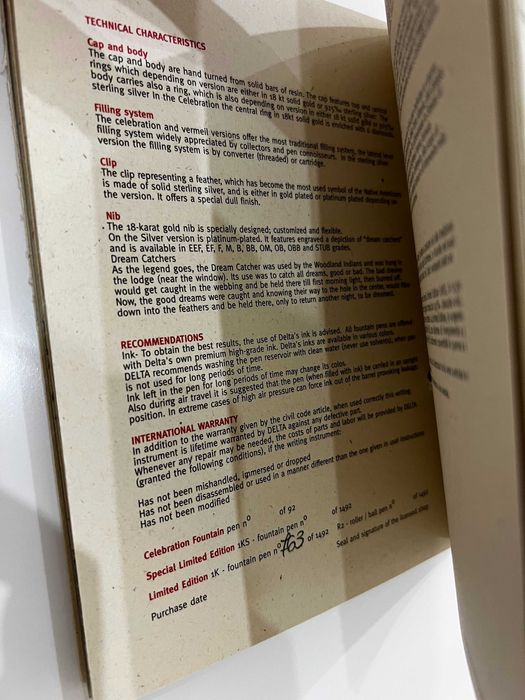 TECHNICAL CHARACTERISTICS
Cap and body
The cap and body are hand turned from solid bars of resin. The cap features top and
rings which depending on version are either in 18 kt solid gold or 925‰ sterling silver. The
body carries also a ring, which is also depending on version in either 18 kt solid gold or 925‰
sterling silver In the Celebration the central ring in 18kt solid gold is enriched with 8 diamonds.
Filling system
The celebration and vermeil versions offer the most traditional filling system, the lateral lever
filling system widely appreciated by collectors and pen connoisseurs. In the sterling silver
version the filling system is by converter (threaded) or cartridge.
Clip
The clip representing a feather, which has become the most used symbol of the Native Americans
is made of solid sterling silver, and is either in gold plated or platinum plated depending on
the version. It offers a special dull finish.
Nib
The 18-karat gold nib is specially designed; customized and flexible.
On the Silver version is platinum-plated. It features engraved a depiction of "dream catchers"
and is available in EEF, EF, F, M, B, BB, OM, OB, OBB and STUB grades.
Dream Catchers
As the legend goes, the Dream Catcher was used by the Woodland Indians and was hung in
the lodge (near the window). Its use was to catch all dreams, good or bad. The bad dreams
would get caught in the webbing and be held there till first morning light, then burned off.
Now, the good dreams were caught and knowing their way to the hole in the center, would filter
down into the feathers and be held there, only to return another night, to be dreamed.
RECOMMENDATIONS
Ink- To obtain the best results, the use of Delta's ink is advised. All fountain pens are offered
with Delta's own premium high-grade ink. Delta's inks are available in various colors.
DELTA recommends washing the pen reservoir with clean water (never use solvents), when pen
is not used for long periods of time.
Ink left in the pen for long periods of time may change its colos.
Also during air travel it is suggested that the pen (when filled with ink) be carried in an upright
position. In extreme cases of high air pressure can force ink out of the barrel provoking leakage.
INTERNATIONAL WARRANTY
In addition to the warranty given by the civil code article, when used correctly this writing
instrument is lifetime warranted by DELTA against any defective part.
Whenever any repair may be needed, the costs of parts and labor will be provided by DELTA
(granted the following conditions), if the writing instrument:
Has not been mishandled, immersed or dropped
Has not been disassembled or used in a manner different than the one given in said instructions
Has not been modified
Celebration Fountain pen n° of 92
Special Limited Edition 1KS - fountain pen n° of 1492
Limited Edition 1K - fountain pen n° 763 of 1492 R2 - roller / ball pen n° of 1492
Purchase date Seal and signature of the licensed shop